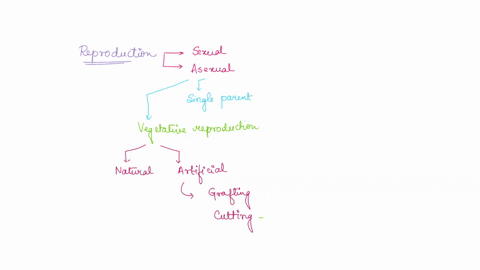 Reproduction
Sexual
Asexual
Single parent
Vegetative reproduction
Natural
Artificial
Grafting
Cutting